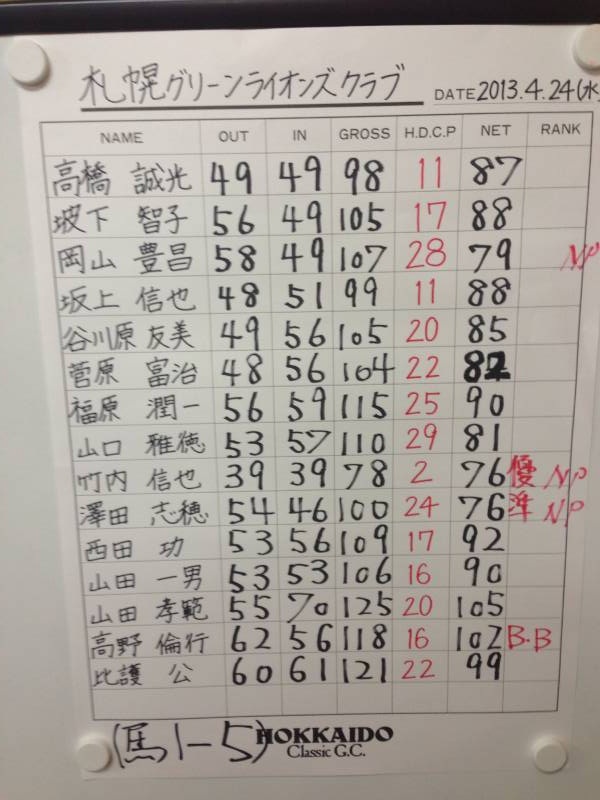 札幌グリーンライオンズクラブ DATE 2013.4.24(水)
NAME OUT IN GROSS H.D.C.P NET RANK
高橋 誠光 49 49 98 11 87
坂下 智子 56 49 105 17 88
岡山 豊昌 58 49 107 28 79 NP
坂上 信也 48 51 99 11 88
谷川原 友美 49 56 105 20 85
菅原 富治 48 56 104 22 82
福原 潤一 56 59 115 25 90
山口 雅徳 53 57 110 29 81
竹内 信也 39 39 78 2 76 優 NP
澤田 志穂 54 46 100 24 76 準 NP
西田 功 53 56 109 17 92
山田 一男 53 53 106 16 90
山田 孝範 55 70 125 20 105
高野 倫行 62 56 118 16 102 B.B
比護 公 60 61 121 22 99
(馬1-5) HOKKAIDO
Classic G.C.